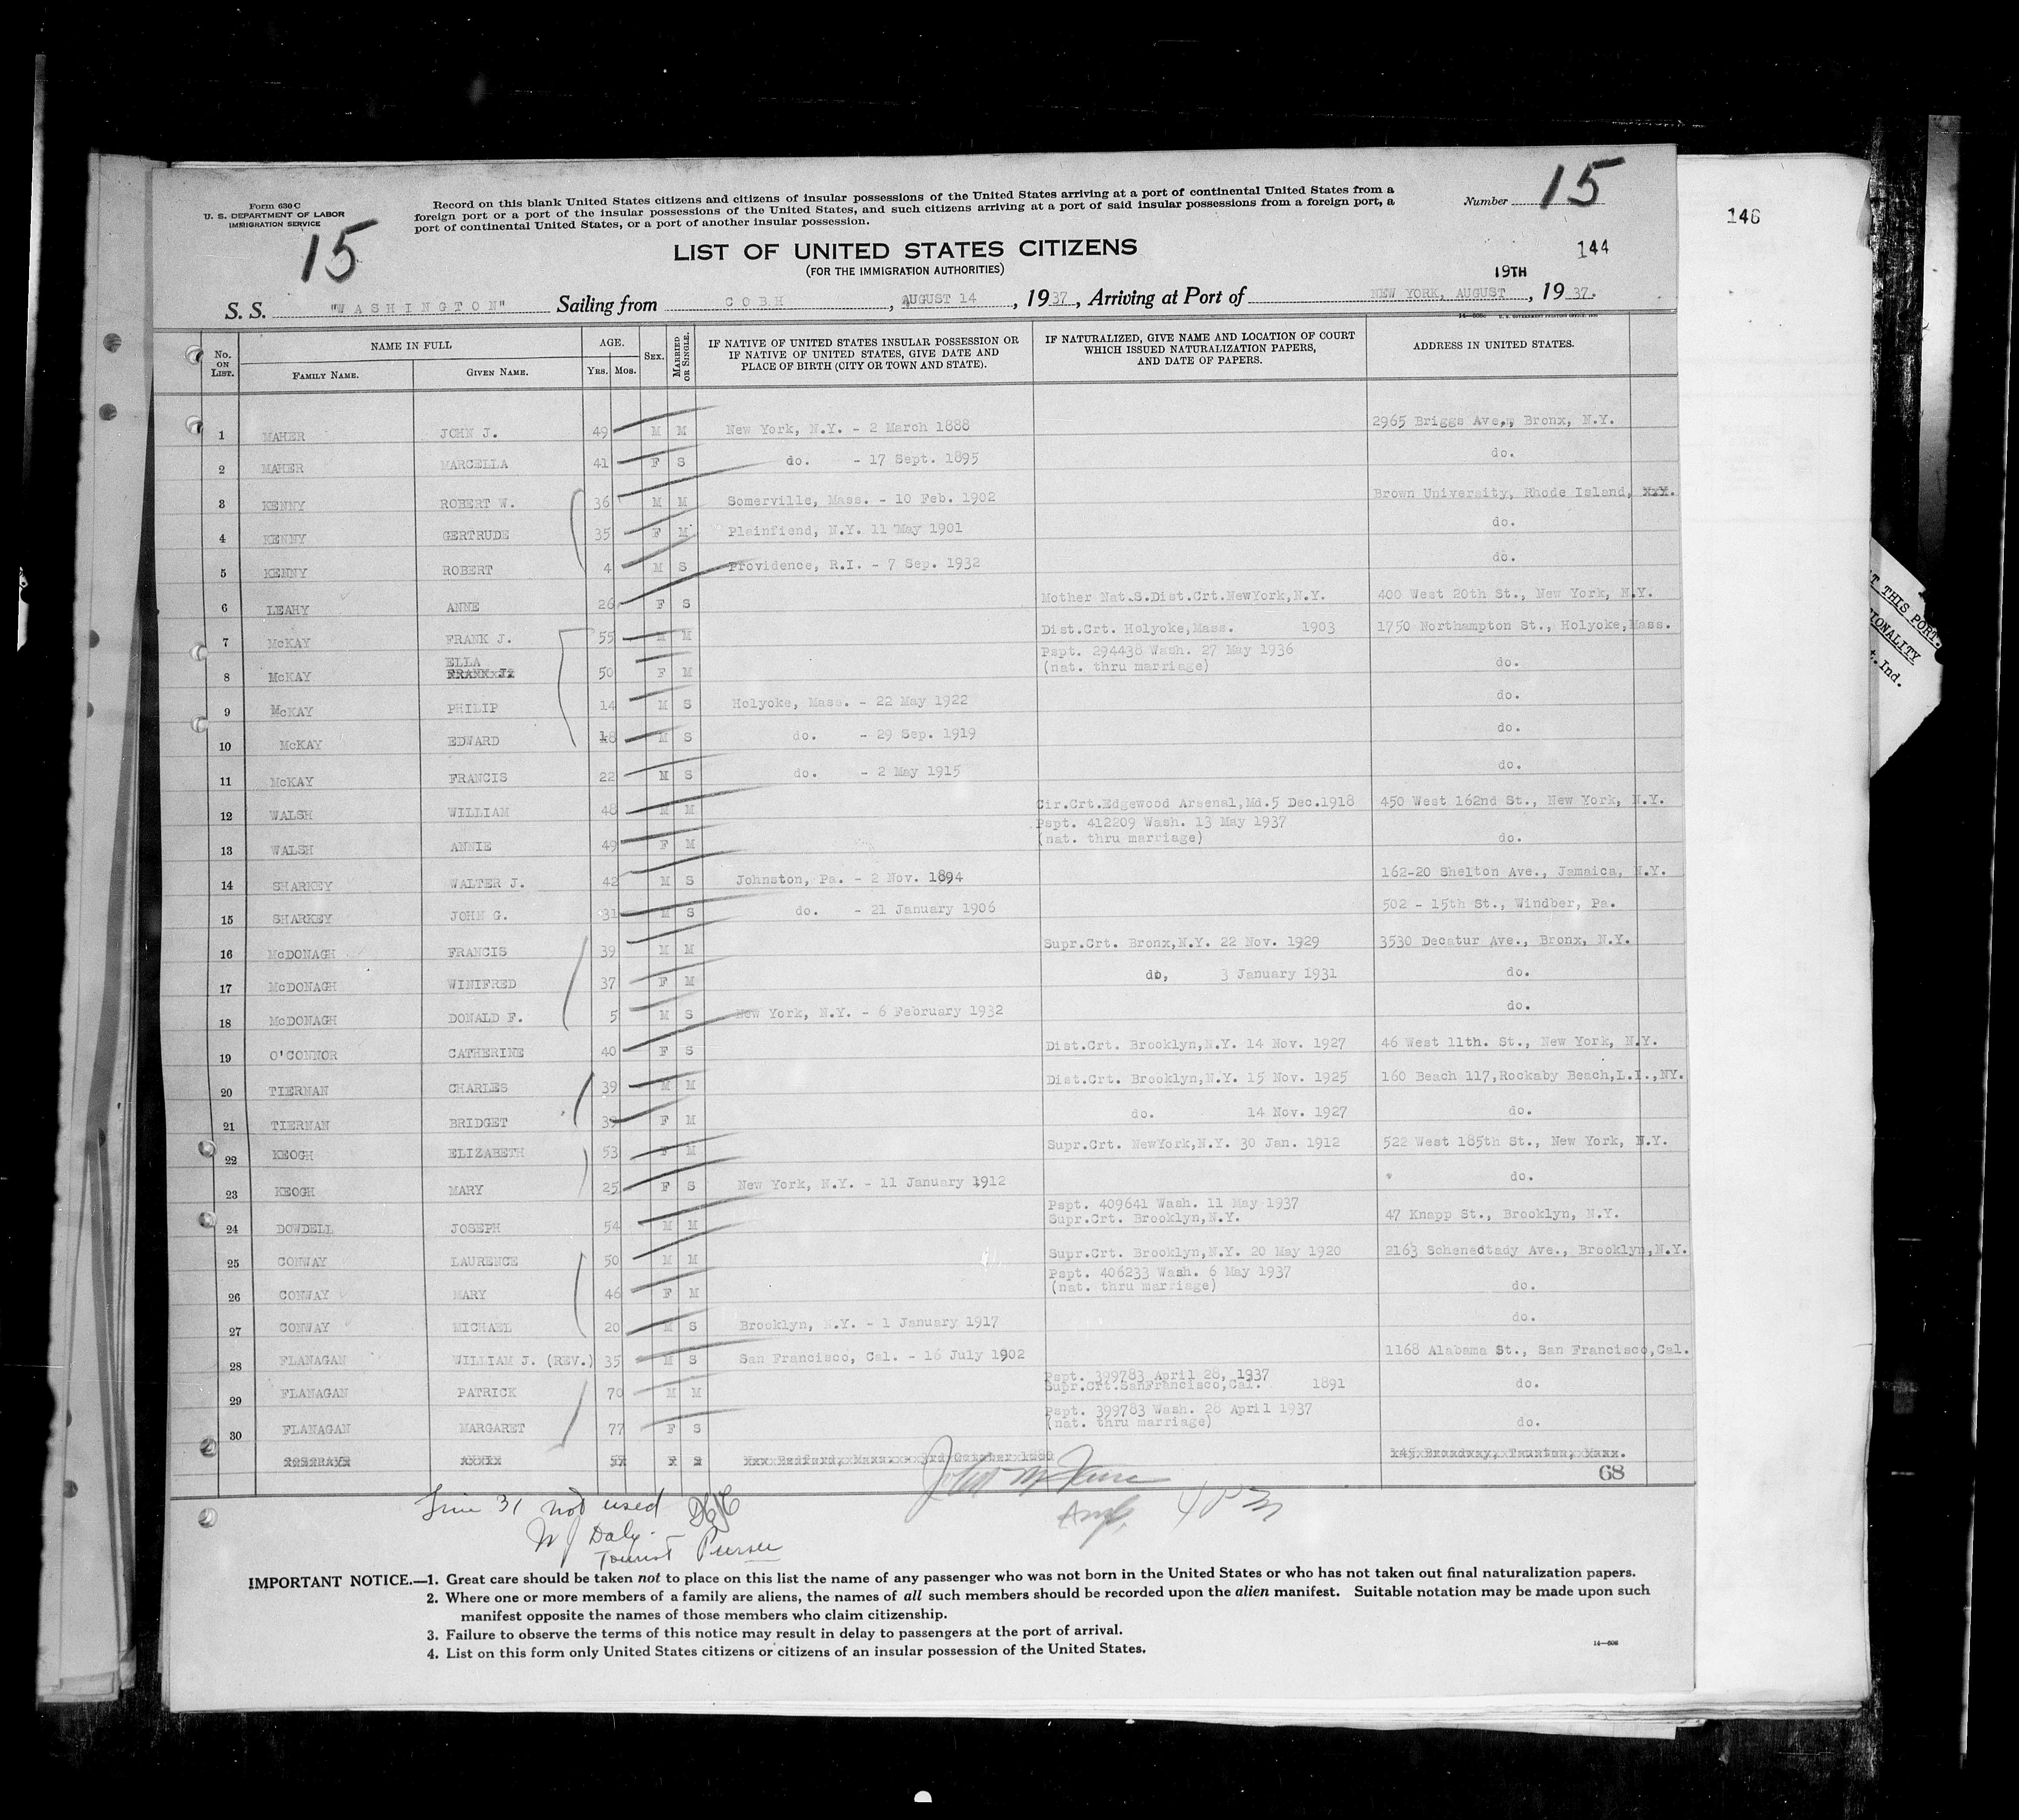 146
15
Number 15
Form 630 C
U. S. DEPARTMENT OF LABOR
IMMIGRATION SERVICE
Record on this blank United States citizens and citizens of insular possessions of the United States arriving at a port of continental United States from a
foreign port or a port of the insular possessions of the United States, and such citizens arriving at a port of said insular possessions from a foreign port, a
port of continental United States, or a port of another insular possession.
144
LIST OF UNITED STATES CITIZENS
(FOR THE IMMIGRATION AUTHORITIES)
19TH
S. S. "WASHINGTON" Sailing from COBH, AUGUST 14, 1937, Arriving at Port of NEW YORK, AUGUST, 1937.
No. ON LIST. NAME IN FULL FAMILY NAME. GIVEN NAME. AGE. YRS. MOS. SEX. MARRIED OR SINGLE. IF NATIVE OF UNITED STATES INSULAR POSSESSION OR IF NATIVE OF UNITED STATES, GIVE DATE AND PLACE OF BIRTH (CITY OR TOWN AND STATE). IF NATURALIZED, GIVE NAME AND LOCATION OF COURT WHICH ISSUED NATURALIZATION PAPERS, AND DATE OF PAPERS. ADDRESS IN UNITED STATES.
1 MAHER JOHN J. 49 M M New York, N.Y. - 2 March 1888 2965 Briggs Ave., Bronx, N.Y.
2 MAHER MARCELLA 41 F S do. - 17 Sept. 1895 do.
3 KENNY ROBERT W. 36 M M Somerville, Mass. - 10 Feb. 1902 Brown University, Rhode Island, xxx.
4 KENNY GERTRUDE 35 F M Plainfiend, N.Y. 11 May 1901 do.
5 KENNY ROBERT 4 M S Providence, R.I. - 7 Sep. 1932 do.
6 LEAHY ANNE 26 F S Mother Nat.S.Dist.Crt.NewYork,N.Y. 400 West 20th St., New York, N.Y.
7 McKAY FRANK J. 55 M M Dist.Crt. Holyoke,Mass. 1903 1750 Northampton St., Holyoke,Mass.
8 McKAY ELLA FRANK J. 50 F M Pspt. 294438 Wash. 27 May 1936 (nat. thru marriage) do.
9 McKAY PHILIP 14 M S Holyoke, Mass. - 22 May 1922 do.
10 McKAY EDWARD 18 M S do. - 29 Sep. 1919 do.
11 McKAY FRANCIS 22 M S do. - 2 May 1915 do.
12 WALSH WILLIAM 48 M M Cir.Crt.Edgewood Arsenal,Md.5 Dec.1918 450 West 162nd St., New York, N.Y.
13 WALSH ANNIE 49 F M Pspt. 412209 Wash. 13 May 1937 (nat. thru marriage) do.
14 SHARKEY WALTER J. 42 M S Johnston, Pa. - 2 Nov. 1894 162-20 Shelton Ave., Jamaica, N.Y.
15 SHARKEY JOHN G. 31 M S do. - 21 January 1906 502 - 15th St., Windber, Pa.
16 McDONAGH FRANCIS 39 M M Supr.Crt. Bronx,N.Y. 22 Nov. 1929 3530 Decatur Ave., Bronx, N.Y.
17 McDONAGH WINIFRED 37 F M do, 3 January 1931 do.
18 McDONAGH DONALD F. 5 M S New York, N.Y. - 6 February 1932 do.
19 O'CONNOR CATHERINE 40 F S Dist.Crt. Brooklyn,N.Y. 14 Nov. 1927 46 West 11th. St., New York, N.Y.
20 TIERNAN CHARLES 39 M M Dist.Crt. Brooklyn,N.Y. 15 Nov. 1925 160 Beach 117,Rockaby Beach,L.I.,NY.
21 TIERNAN BRIDGET 39 F M do. 14 Nov. 1927 do.
22 KEOGH ELIZABETH 53 F M Supr.Crt. NewYork,N.Y. 30 Jan. 1912 522 West 185th St., New York, N.Y.
23 KEOGH MARY 25 F S New York, N.Y. - 11 January 1912 do.
24 DOWDELL JOSEPH 54 M M Pspt. 409641 Wash. 11 May 1937 Supr.Crt. Brooklyn,N.Y. 47 Knapp St., Brooklyn, N.Y.
25 CONWAY LAURENCE 50 M M Supr.Crt. Brooklyn,N.Y. 20 May 1920 2163 Schenectady Ave., Brooklyn,N.Y.
26 CONWAY MARY 46 F M Pspt. 406233 Wash. 6 May 1937 (nat. thru marriage) do.
27 CONWAY MICHAEL 20 M S Brooklyn, N.Y. - 1 January 1917 do.
28 FLANAGAN WILLIAM J. (REV.) 35 M S San Francisco, Cal. - 16 July 1902 1168 Alabama St., San Francisco,Cal.
29 FLANAGAN PATRICK 70 M M Pspt. 399783 April 28, 1937 Supr.Crt.SanFrancisco,Cal. 1891 do.
30 FLANAGAN MARGARET 77 F S Pspt. 399783 Wash. 28 April 1937 (nat. thru marriage) do.
145 Broadway, Taunton, Mass.
68
Line 31 not used
W J Daly.
Tourist Purser
4 PM
IMPORTANT NOTICE.—1. Great care should be taken not to place on this list the name of any passenger who was not born in the United States or who has not taken out final naturalization papers.
2. Where one or more members of a family are aliens, the names of all such members should be recorded upon the alien manifest. Suitable notation may be made upon such
manifest opposite the names of those members who claim citizenship.
3. Failure to observe the terms of this notice may result in delay to passengers at the port of arrival.
4. List on this form only United States citizens or citizens of an insular possession of the United States.
T THIS PORT.
IONALITY
Ind.